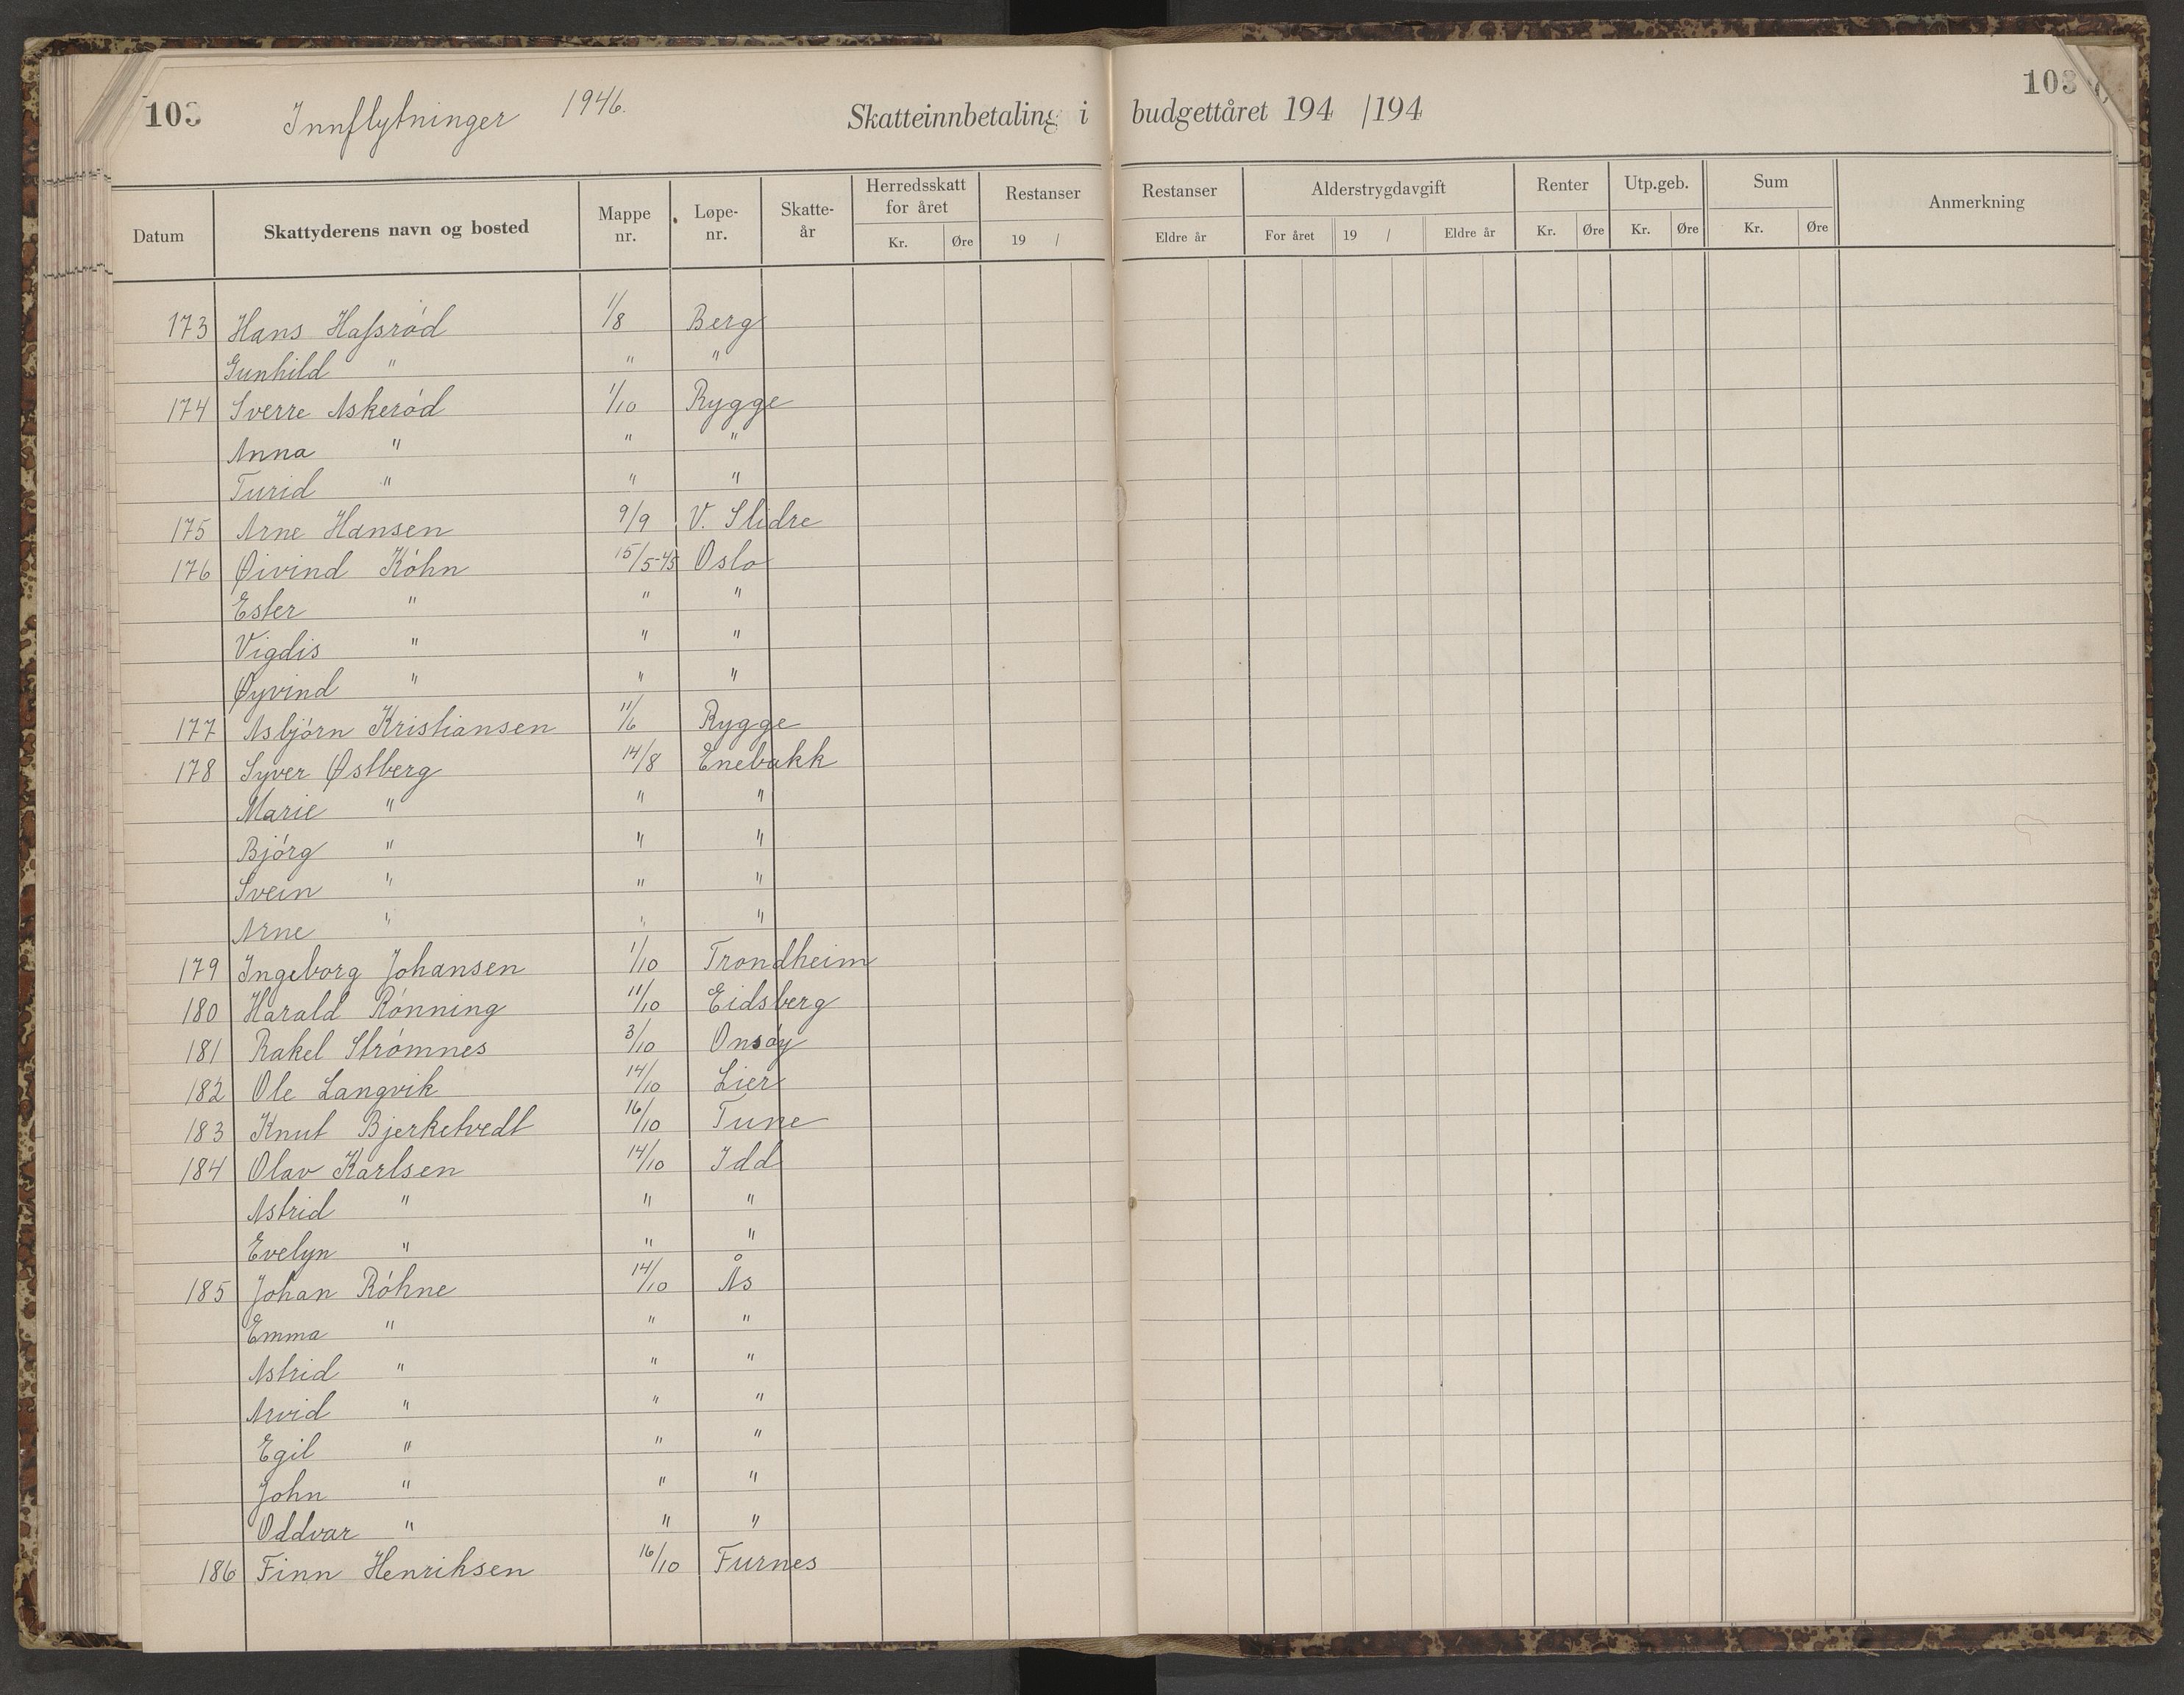 103 Innflytninger 1946. Skatteinnbetaling i budgettåret 194 /194 103
Datum Skattyderens navn og bosted Mappe nr. Løpe-nr. Skatte-år Herredsskatt for året Kr. Øre Restanser 19 / Restanser Eldre år Alderstrygdavgift For året 19 / Eldre år Renter Kr. Øre Utp.geb. Kr. Øre Sum Kr. Øre Anmerkning
173 Hans Hassrød 1/8 Berg
Gunhild " " "
174 Sverre Askerød 1/10 Rygge
Anna " " "
Turid " " "
175 Arne Hansen 9/9 V. Slidre
176 Øivind Köhn 15/5-45 Oslo
Ester " " "
Vigdis " " "
Øyvind " " "
177 Asbjørn Kristiansen 11/6 Rygge
178 Syver Østberg 14/8 Enebakk
Marie " " "
Bjørg " " "
Svein " " "
Arne " " "
179 Ingeborg Johansen 1/10 Trondheim
180 Harald Rønning 11/10 Eidsberg
181 Rakel Strømnes 3/10 Onsøy
182 Ole Langvik 14/10 Lier
183 Knut Bjerketvedt 16/10 Tune
184 Olav Karlsen 14/10 Idd
Astrid " " "
Evelyn " " "
185 Johan Røhne 14/10 Ås
Emma " " "
Astrid " " "
Arvid " " "
Egil " " "
John " " "
Oddvar " " "
186 Finn Henriksen 16/10 Furnes